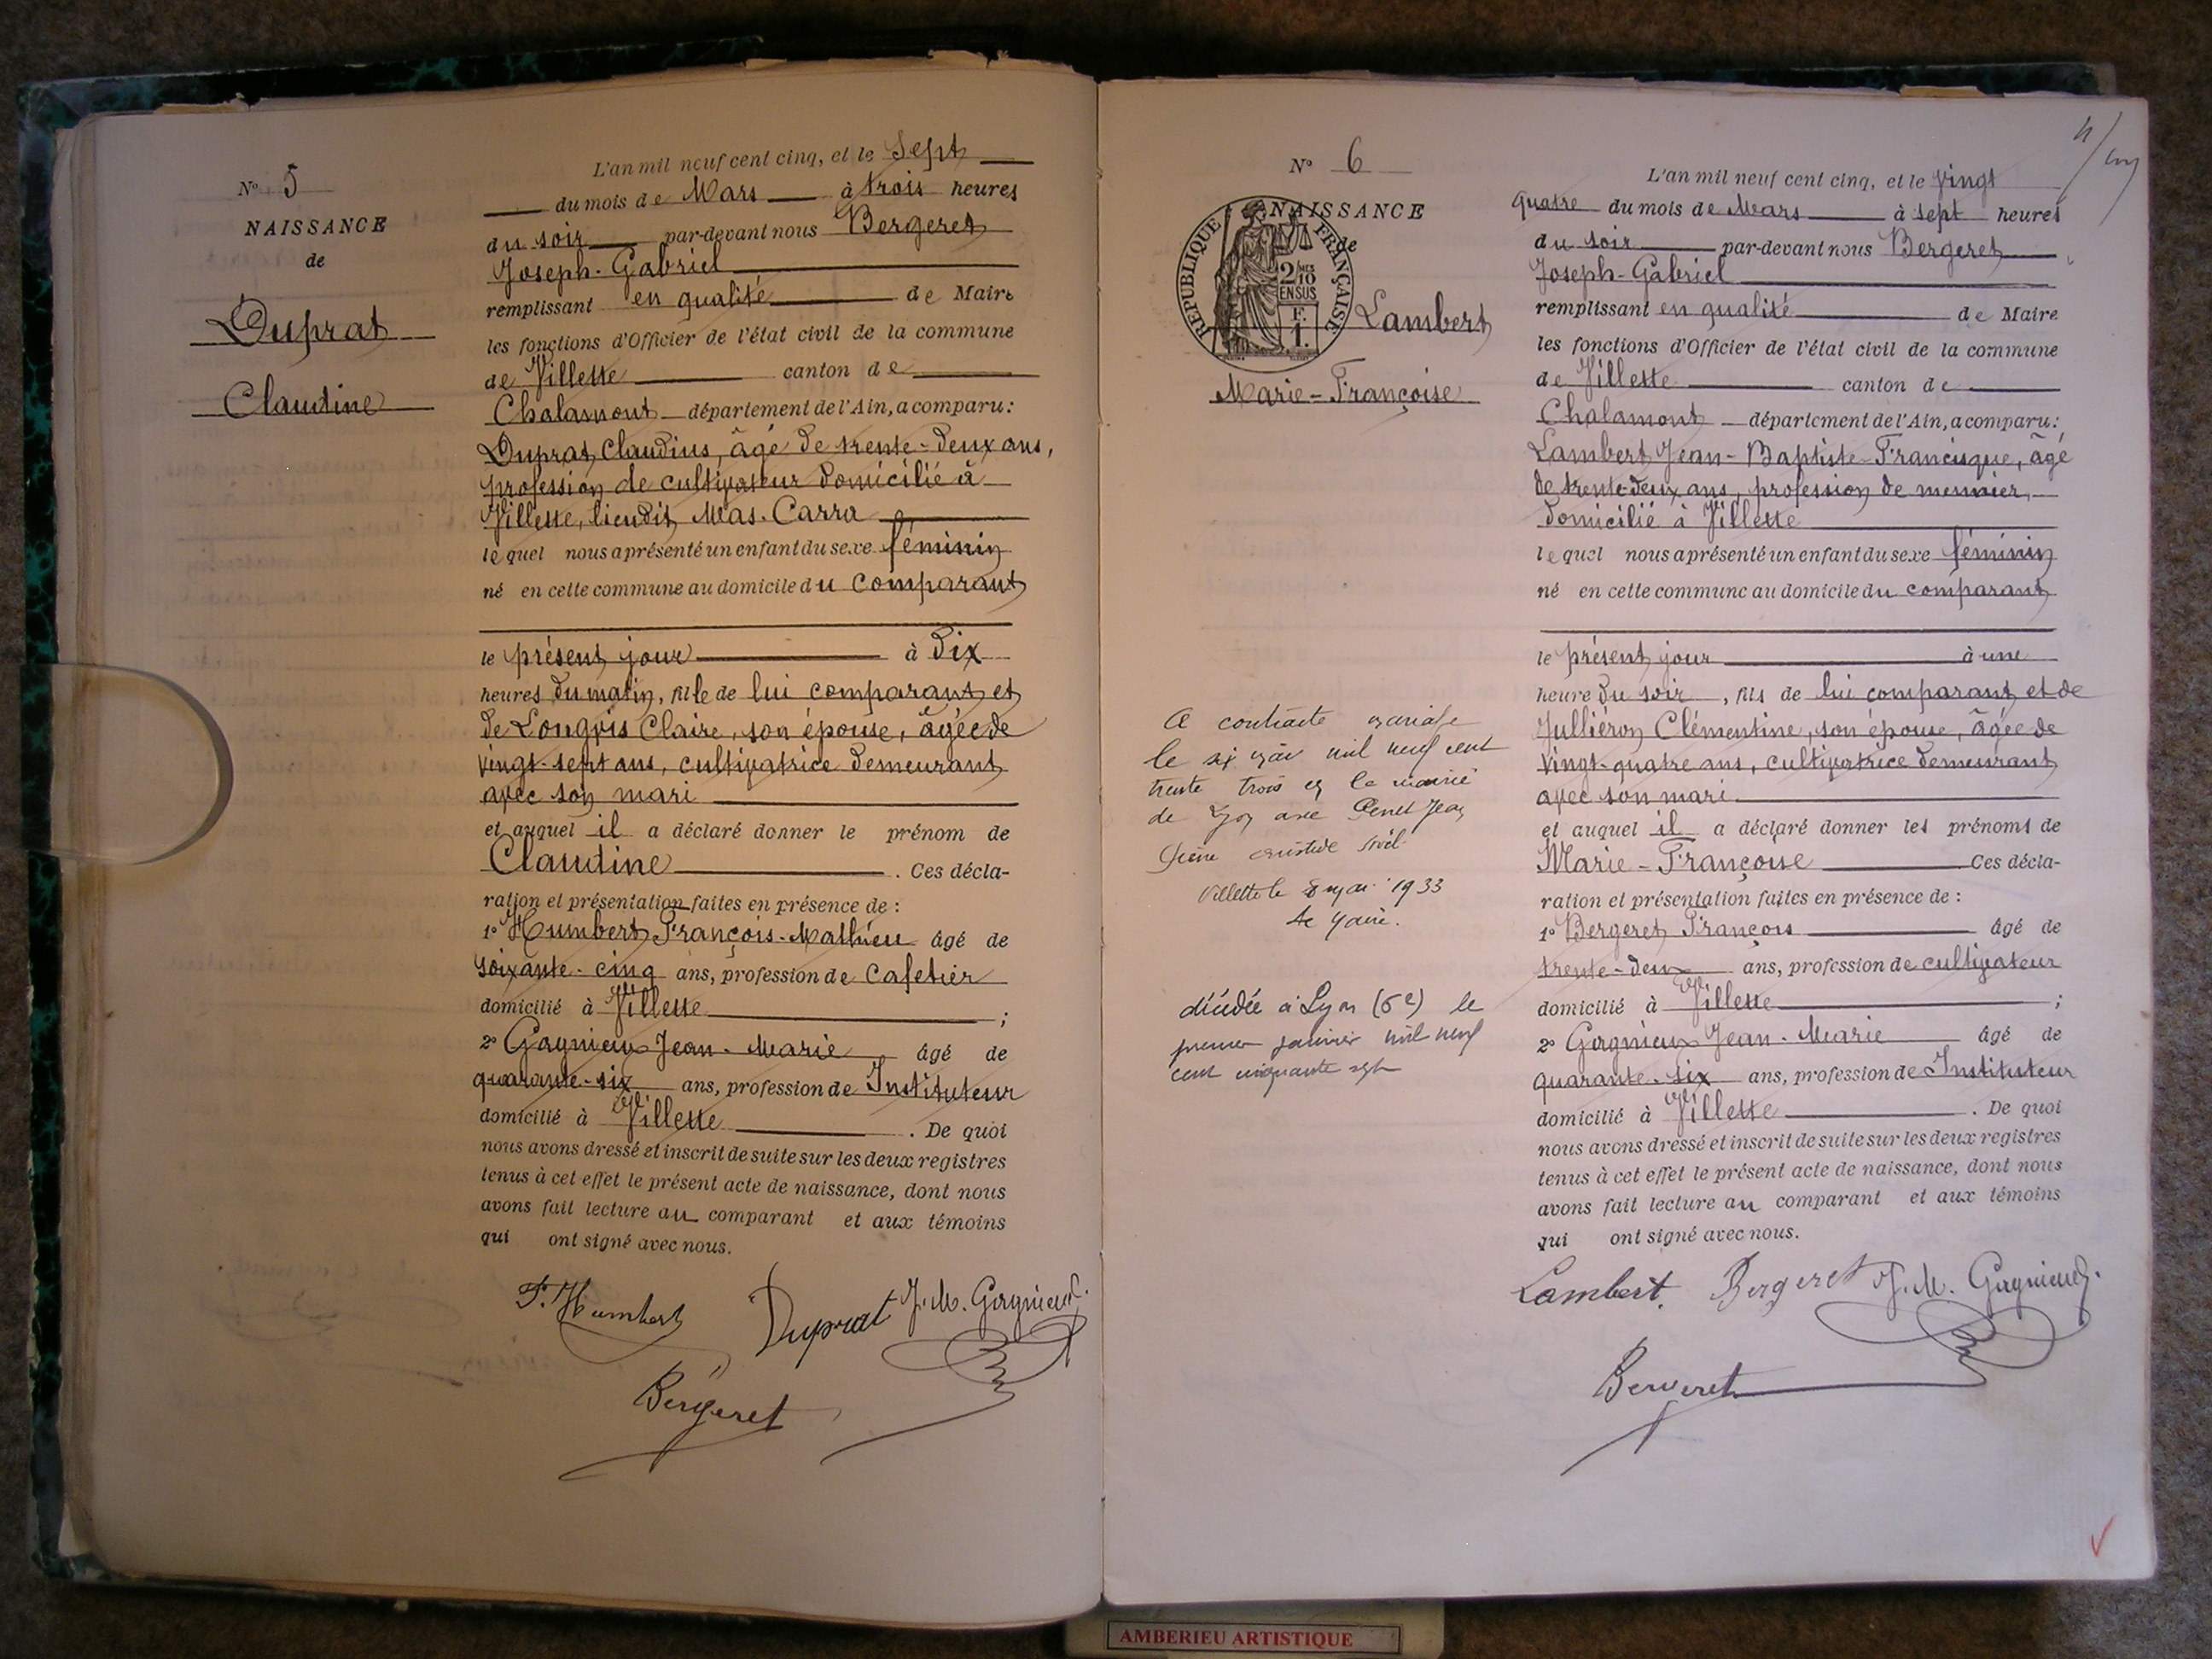 N° 5
NAISSANCE
de
Duprat
Claudine
L'an mil neuf cent cinq, et le Sept
du mois de Mars à trois heures
du soir par-devant nous Bergeret
Joseph-Gabriel
remplissant en qualité de Maire
les fonctions d'Officier de l'état civil de la commune
de Villette canton de
Chalamont département de l'Ain, a comparu:
Duprat Claudius, âgé de trente-deux ans,
profession de cultivateur domicilié à
Villette, lieudit Mas-Carra
lequel nous a présenté un enfant du sexe féminin
né en cette commune au domicile du comparant
le présent jour à dix
heures du matin, fille de lui comparant et
de Longvis Claire, son épouse, âgée de
vingt-sept ans, cultivatrice demeurant
avec son mari
et auquel il a déclaré donner le prénom de
Claudine. Ces décla-
ration et présentation faites en présence de :
1° Humbert François-Mathieu âgé de
soixante-cinq ans, profession de cafetier
domicilié à Villette ;
2° Gagnieux Jean-Marie âgé de
quarante-six ans, profession de Instituteur
domicilié à Villette. De quoi
nous avons dressé et inscrit de suite sur les deux registres
tenus à cet effet le présent acte de naissance, dont nous
avons fait lecture au comparant et aux témoins
qui ont signé avec nous.
F. Humbert Duprat J. M. Gagnieux
Bergeret
4
N° 6
NAISSANCE
de
REPUBLIQUE FRANÇAISE
2/10 MES
EN SUS
F.
1.
Lambert
Marie-Françoise
A contracté mariage
le six mai mil neuf cent
trente trois en la mairie
de Lyon avec Penet Jean
Villette le 8 mai 1933
Le Maire.
décédée à Lyon (6e) le
premier janvier mil neuf
cent cinquante sept
L'an mil neuf cent cinq, et le vingt
quatre du mois de Mars à sept heures
du soir par-devant nous Bergeret
Joseph-Gabriel
remplissant en qualité de Maire
les fonctions d'Officier de l'état civil de la commune
de Villette canton de
Chalamont département de l'Ain, a comparu:
Lambert Jean-Baptiste-Francisque, âgé
de trente-deux ans, profession de meunier,
domicilié à Villette
lequel nous a présenté un enfant du sexe féminin
né en cette commune au domicile du comparant
le présent jour à une
heure du soir, fils de lui comparant et de
Julliéron Clémentine, son épouse, âgée de
vingt-quatre ans, cultivatrice demeurant
avec son mari.
et auquel il a déclaré donner les prénoms de
Marie-Françoise Ces décla-
ration et présentation faites en présence de :
1° Bergeret François âgé de
trente-deux ans, profession de cultivateur
domicilié à Villette ;
2° Gagnieux Jean-Marie âgé de
quarante-six ans, profession de Instituteur
domicilié à Villette. De quoi
nous avons dressé et inscrit de suite sur les deux registres
tenus à cet effet le présent acte de naissance, dont nous
avons fait lecture au comparant et aux témoins
qui ont signé avec nous.
Lambert. Bergeret J. M. Gagnieux.
Bergeret
AMBERIEU ARTISTIQUE